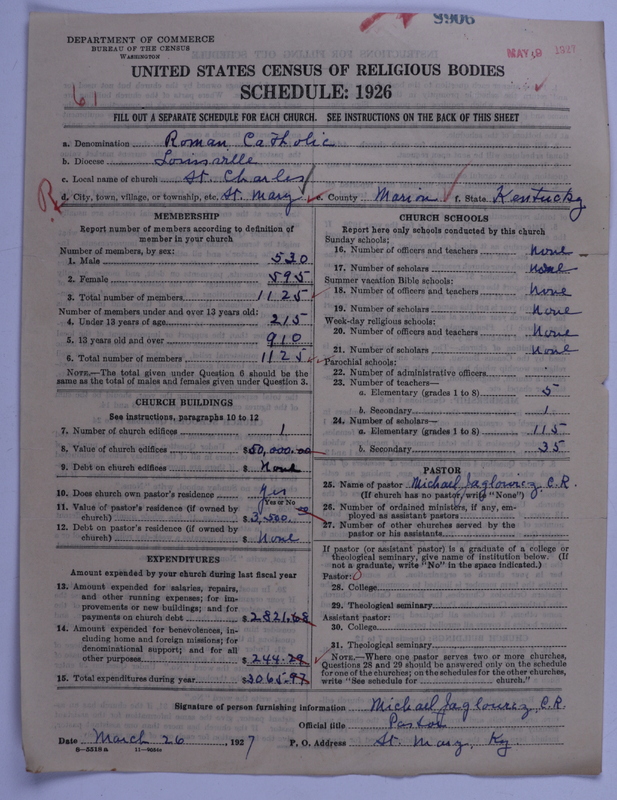 9906
DEPARTMENT OF COMMERCE
BUREAU OF THE CENSUS
WASHINGTON
MAY 9 1927
UNITED STATES CENSUS OF RELIGIOUS BODIES
SCHEDULE: 1926
61
FILL OUT A SEPARATE SCHEDULE FOR EACH CHURCH. SEE INSTRUCTIONS ON THE BACK OF THIS SHEET
a. Denomination Roman Catholic
b. Diocese Louisville
c. Local name of church St. Charles
R
d. City, town, village, or township, etc. St. Mary e. County Marion f. State Kentucky
MEMBERSHIP
Report number of members according to definition of
member in your church
Number of members, by sex:
1. Male 530
2. Female 595
3. Total number of members 1125
Number of members under and over 13 years old:
4. Under 13 years of age 215
5. 13 years old and over 910
6. Total number of members 1125
NOTE.—The total given under Question 6 should be the
same as the total of males and females given under Question 3.
CHURCH BUILDINGS
See instructions, paragraphs 10 to 12
7. Number of church edifices 1
8. Value of church edifices $50,000.00
9. Debt on church edifices $ None
10. Does church own pastor's residence Yes
Yes or No
11. Value of pastor's residence (if owned by
church) $3,500.00
12. Debt on pastor's residence (if owned by
church) $ None
EXPENDITURES
Amount expended by your church during last fiscal year
13. Amount expended for salaries, repairs,
and other running expenses; for im-
provements or new buildings; and for
payments on church debt $2821.68
14. Amount expended for benevolences, in-
cluding home and foreign missions; for
denominational support; and for all
other purposes $244.29
15. Total expenditures during year $3065.97
CHURCH SCHOOLS
Report here only schools conducted by this church
Sunday schools:
16. Number of officers and teachers None
17. Number of scholars None
Summer vacation Bible schools:
18. Number of officers and teachers None
19. Number of scholars None
Week-day religious schools:
20. Number of officers and teachers None
21. Number of scholars None
Parochial schools:
22. Number of administrative officers
23. Number of teachers—
a. Elementary (grades 1 to 8) 5
b. Secondary 1
24. Number of scholars—
a. Elementary (grades 1 to 8) 115
b. Secondary 35
PASTOR
25. Name of pastor Michael Jaglowicz, C.R.
(If church has no pastor, write "None")
26. Number of ordained ministers, if any, em-
ployed as assistant pastors
27. Number of other churches served by the
pastor or his assistants
If pastor (or assistant pastor) is a graduate of a college or
theological seminary, give name of institution below. (If
not a graduate, write "No" in the space indicated.)
Pastor:
28. College
29. Theological seminary
Assistant pastor:
30. College
31. Theological seminary
NOTE.—Where one pastor serves two or more churches,
Questions 28 and 29 should be answered only on the schedule
for one of the churches; on the schedules for the other churches,
write "See schedule for church."
Signature of person furnishing information Michael Jaglowicz, C.R.
Official title Pastor
Date March 26, 1927 P. O. Address St. Mary, Ky.
8—5518a 11—9034c